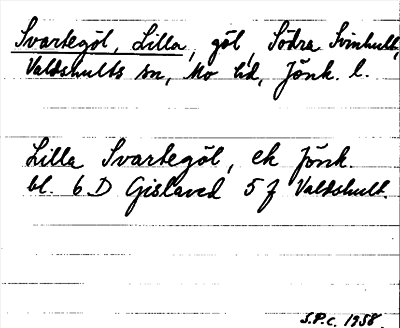 Svartegöl, Lilla, göl, Södra Svinhult,
Valdshults sn, Mo hd, Jönk. l.
Lilla Svartegöl, ek Jönk.
bl. 6 D Gislaved 5 f Valdshult.
S.P.C. 1958.